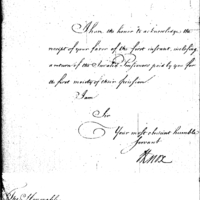 I have the honor to acknowledge the
receipt of your favor of the first instant, inclosing
a return of the Invalid Pensioners paid by you for
the first moiety of their pension
I am
Sir
Your most obedient humble
servant
HKnox
The Honorable